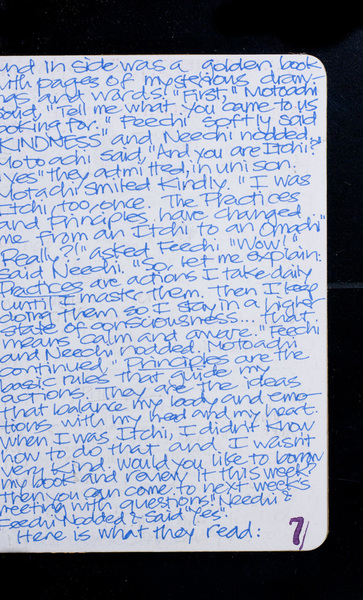 and in side was a golden book
with pages of mysterious draw-
ngs and words. "First," Motoachi
said, "Tell me what you came to us
ooking for." Feechi softly said
KINDNESS" and Neechi nodded.
Motoachi said, "And you are Itchi?"
"Yes" they admitted, in unison.
Motachi smiled kindly. "I was
Itchi, too, once. The Practices
and Principles have changed
me from an Itchi to an Omachi"
Really?!" asked Feechi "Wow!"
said Neechi. "So, let me explain:
Practices are actions I take daily
until I master them. Then I keep
doing them so I stay in a higher
state of consciousness... that
means calm and aware." Feechi
and Neechi nodded. Motoachi
continued, "Principles are the
basic rules that guide my
actions. They are the ideas
that balance my body and emo-
tions with my head and my heart.
when I was Itchi, I didn't know
how to do that and I wasn't
very kind. Would you like to borrow
my book and review it this week?
then you can come to next week's
meeting with questions." Neechi &
Feechi Nodded & said "Yes".
Here is what they read:
7